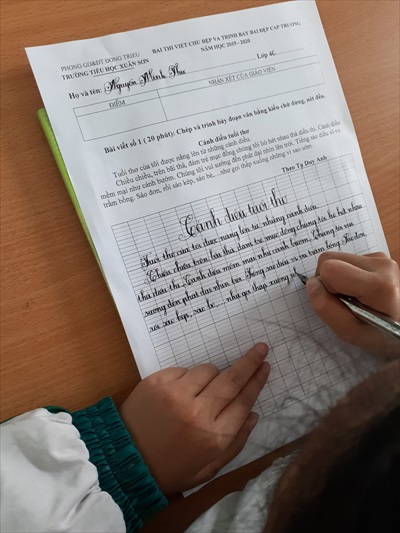 PHÒNG GD&ĐT ĐÔNG TRIỀU
TRƯỜNG TIỂU HỌC XUÂN SƠN
BÀI THI VIẾT CHỮ ĐẸP VÀ TRÌNH BÀY BÀI ĐẸP CẤP TRƯỜNG
NĂM HỌC 2019 - 2020
Họ và tên: Nguyễn Minh Thu Lớp 4C
ĐIỂM
NHẬN XÉT CỦA GIÁO VIÊN
Bài viết số 1 ( 20 phút): Chép và trình bày đoạn văn bằng kiểu chữ đứng, nét đều.
Cánh diều tuổi thơ
Tuổi thơ của tôi được nâng lên từ những cánh diều.
Chiều chiều, trên bãi thả, đám trẻ mục đồng chúng tôi hò hét nhau thả diều thi. Cánh diều
mềm mại như cánh bướm. Chúng tôi vui sướng đến phát dại nhìn lên trời. Tiếng sáo diều vi vu
trầm bổng. Sáo đơn, rồi sáo kép, sáo bè,...như gọi thấp xuống những vì sao sớm.
Theo Tạ Duy Anh
Cánh diều tuổi thơ
Tuổi thơ của tôi được nâng lên từ những cánh diều.
Chiều chiều, trên bãi thả, đám trẻ mục đồng chúng tôi hò hét nhau
thả diều thi. Cánh diều mềm mại như cánh bướm. Chúng tôi vui
sướng đến phát dại nhìn trời. Tiếng sáo diều vi vu trầm bổng. Sáo đơn,
rồi sáo kép, sáo bè,....như gọi thấp xuống